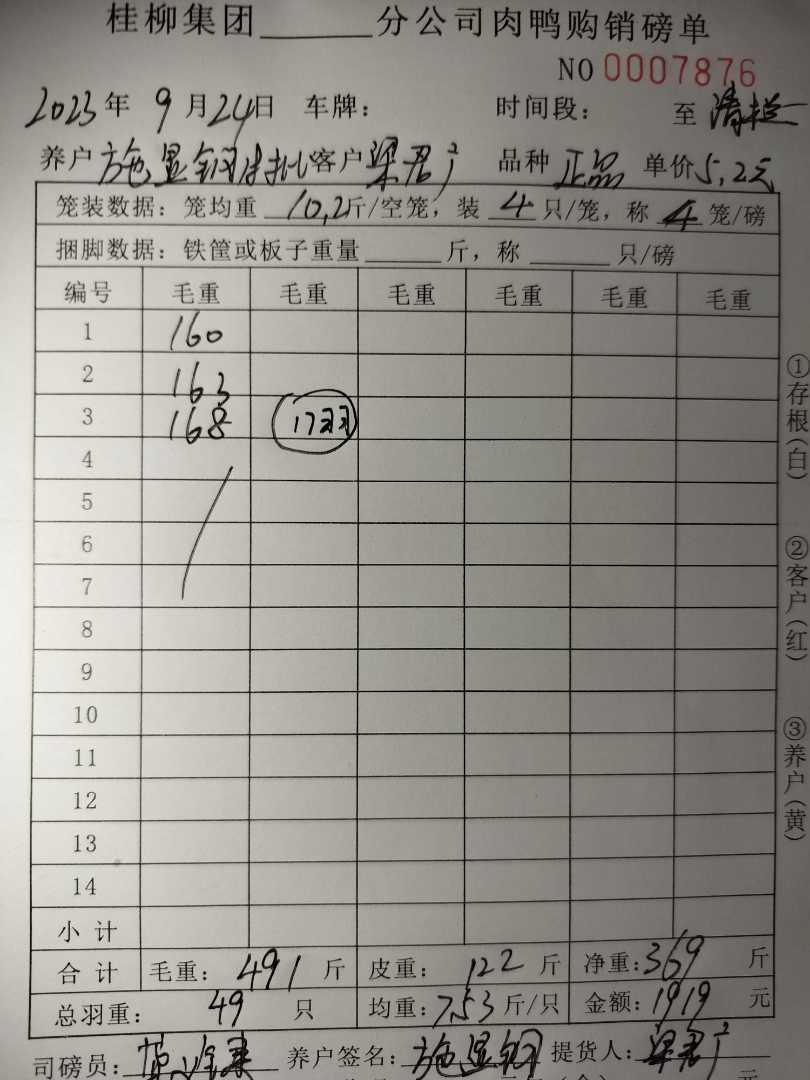 桂柳集团______分公司肉鸭购销磅单
NO 0007876
2023年 9月24日 车牌: 时间段: 至 清栏
养户 施显钢 客户 梁君广 品种 正品 单价5.2元
笼装数据: 笼均重 10.2斤/空笼, 装 4 只/笼, 称 4 笼/磅
捆脚数据: 铁筐或板子重量______斤, 称______只/磅
编号 毛重 毛重 毛重 毛重 毛重 毛重
1 160
2 163
3 168 17羽
4
5
6
7
8
9
10
11
12
13
14
小计
合计 毛重: 491 斤 皮重: 122 斤 净重: 369 斤
总羽重: 49 只 均重: 7.53 斤/只 金额: 1919 元
司磅员: 养户签名: 施显钢 提货人: 梁君广
①存根(白)
②客户(红)
③养户(黄)